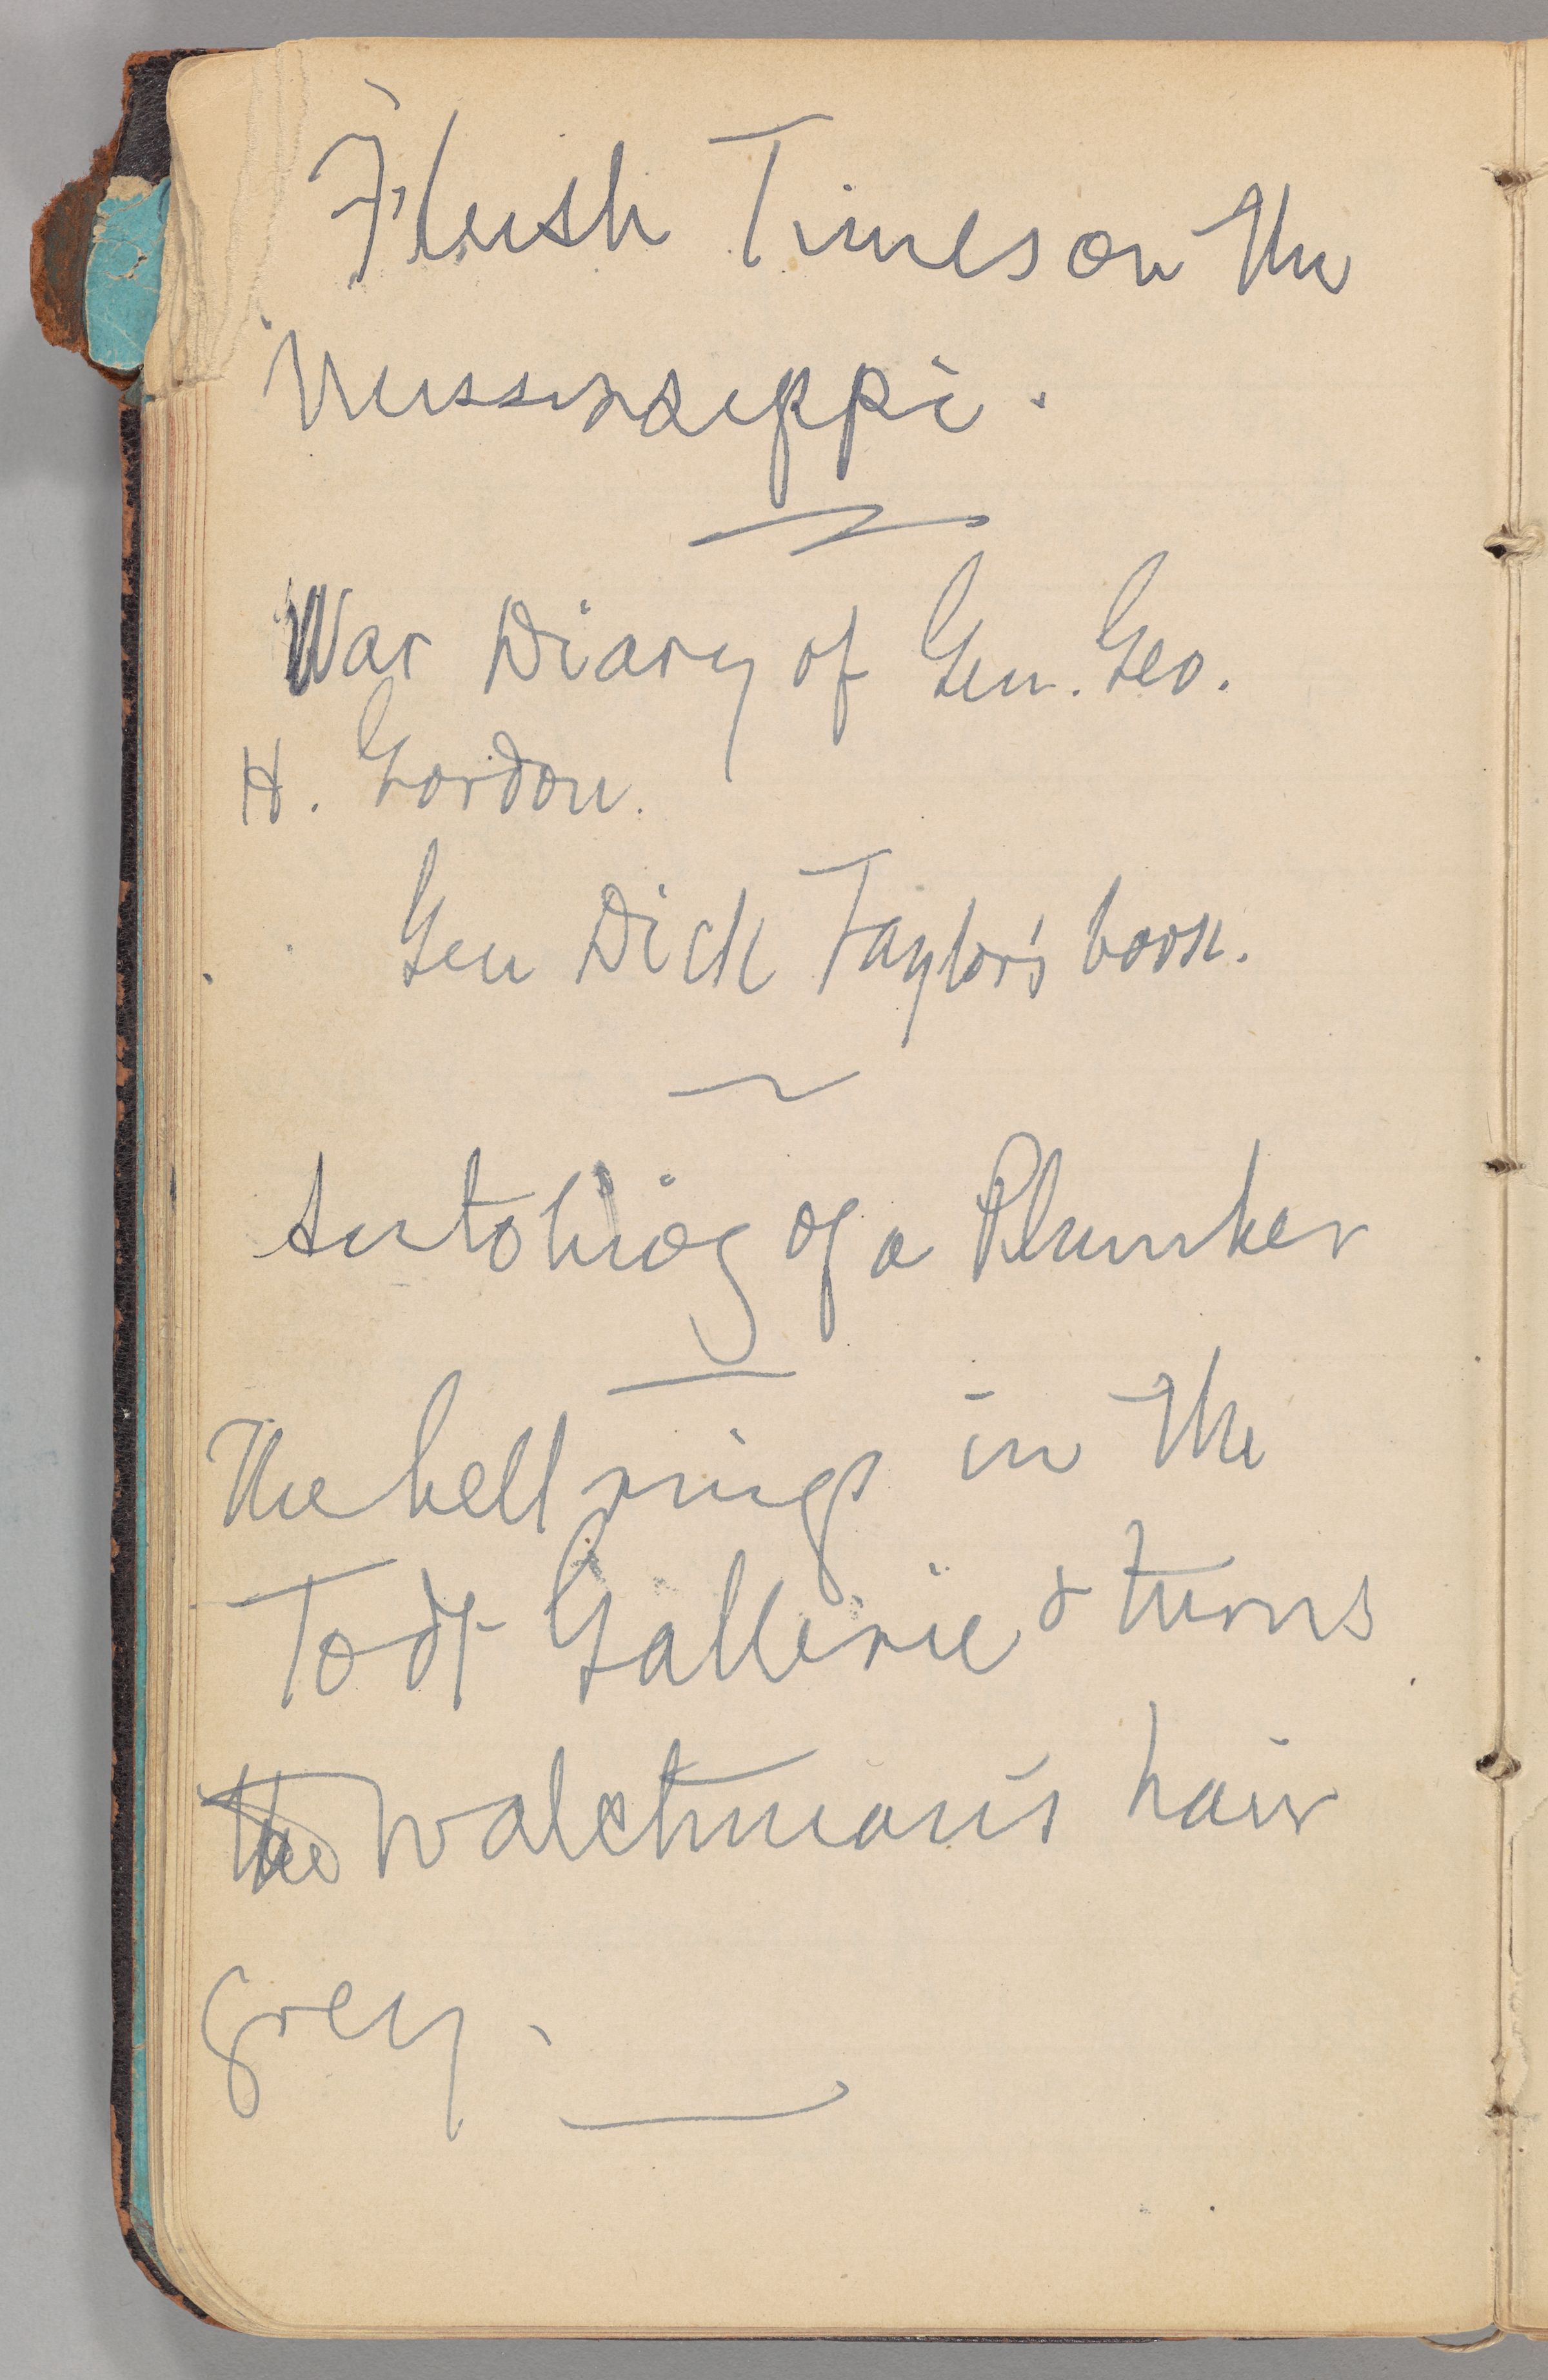 Flush Times on the
Mississippi.
War Diary of Gen. Geo.
H. Gordon.
Gen Dick Taylor's book.
Autobiog of a Plumber
The bell rings in the
Todt Gallerie & turns
the watchman's hair
grey.